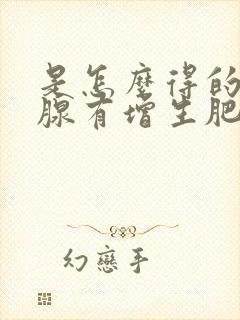 是怎麼得的
腺有增生肥
幻戀手